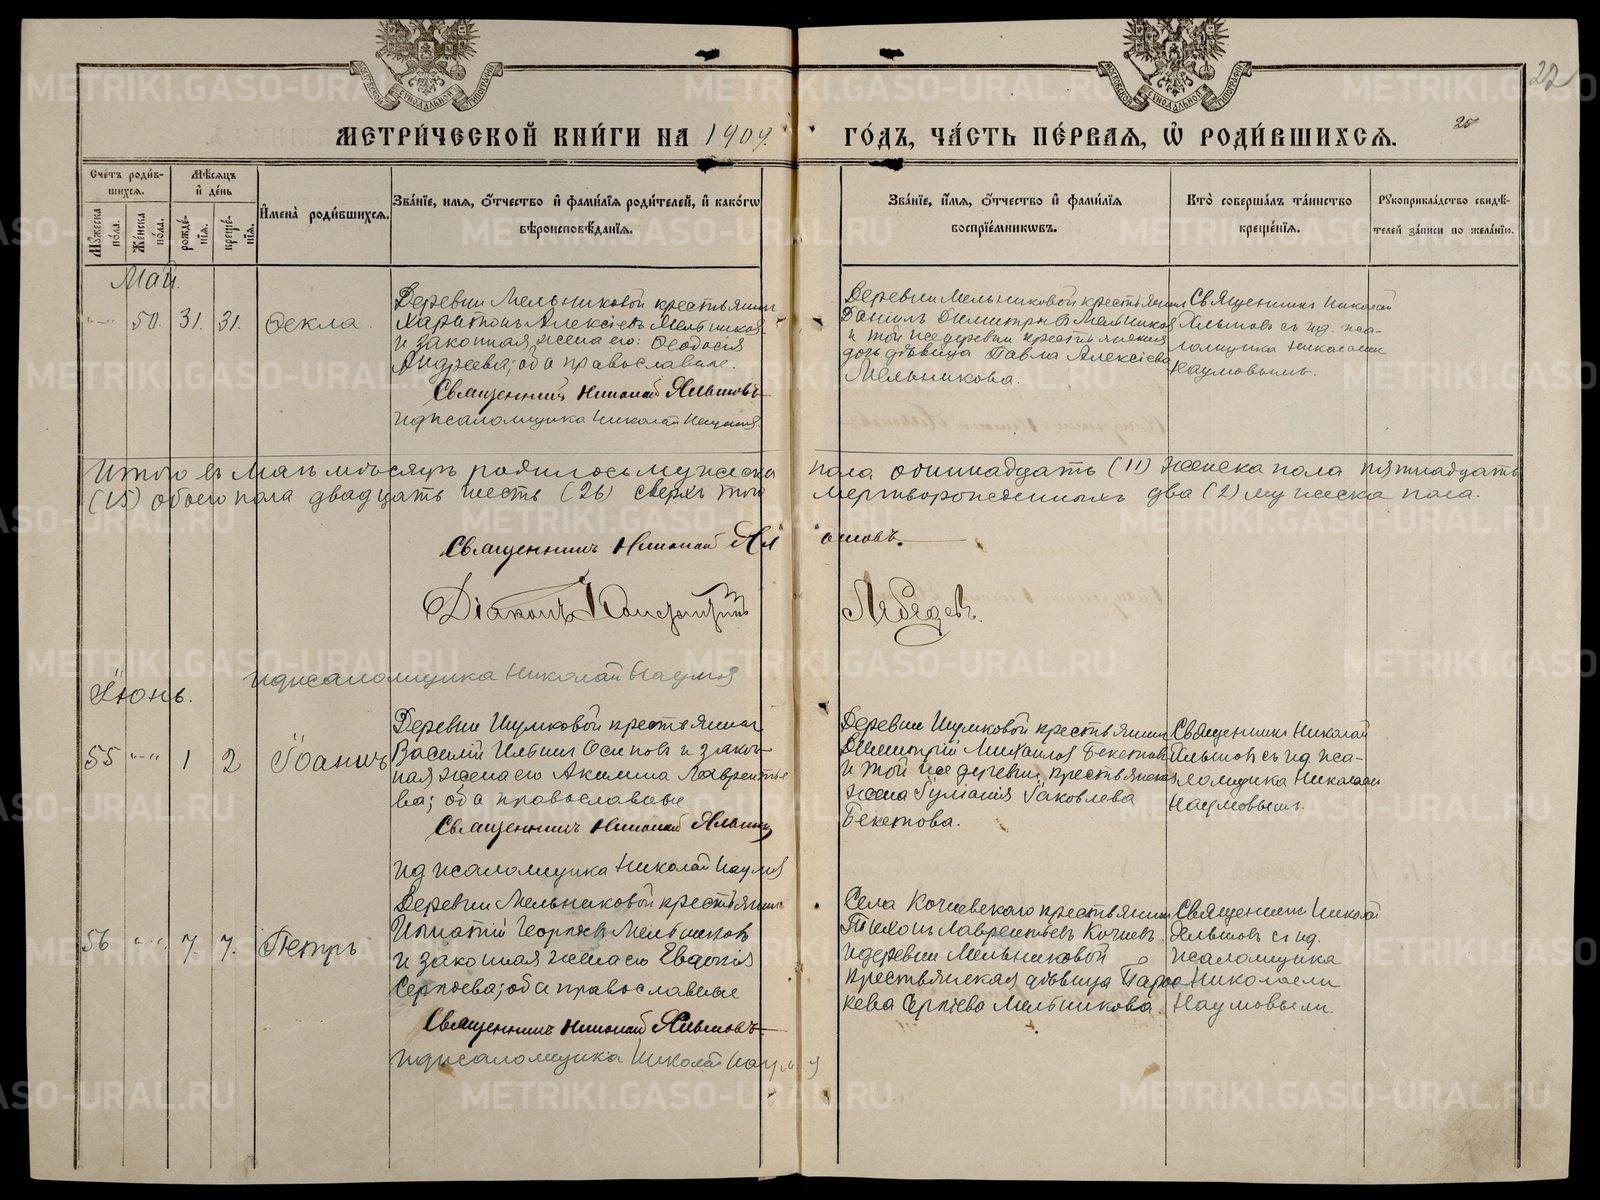 МЕТРИ́ЧЕСКОЙ КНИ́ГИ НА 1909. ГО́ДЪ, ЧА́СТЬ ПЕ́РВАЯ, Ѡ҆ РОДИ́ВШИХСѦ.
22
25
Сче́тъ роди́в-
шихсѧ.
Мꙋ́жеска по́ла.
Же́нска по́ла.
Мѣ́сѧцъ
и҆ де́нь
рожде́-
нїѧ.
креще́-
нїѧ.
И҆мена̀ роди́вшихсѧ.
Зва́нїе, имѧ, ѻ҆́тчество и҆ фами́лїѧ роди́телей, и҆ како́гѡ
вѣроисповѣ́данїѧ.
Зва́нїе, и҆́мѧ, ѻ҆́тчество и҆ фами́лїѧ
воспрїе́мникѡвъ.
Кто̀ соверша́лъ та́инство
креще́нїѧ.
Рꙋкоприкла́дство свидѣ́-
телей за́писи по жела́нїю.
Май.
"—" 50. 31. 31. Ѳекла.
Деревни Мельниковой крестьянин
Харитонъ Алексіевъ Мельников
и законная жена его: Ѳеодосія
Андреева; оба православные.
Священникъ Николай Яльшовъ
и д псаломщика Николай Наумов
Деревни Мельниковой крестьянин
Даніилъ Димитріев Мельников
и той же деревни крестьянская
дочь дѣвица Павла Алексіева
Мельникова.
Священникъ Николай
Яльшовъ съ и.д. пса-
ломщика Николаем
Наумовымъ.
Итого въ Маѣ мѣсяцѣ родилось мужеска пола одиннадцать (11) женска пола пятнадцать
(15) обоего пола двадцать шесть (26) сверхъ того мертворожденныхъ два (2) мужеска пола.
Священникъ Николай Яльшовъ.
Діаконъ Константинъ Лебедевъ.
и д псаломщика Николай Наумов
Іюнь.
55 "—" 1 2 Іоаннъ
Деревни Шумковой крестьянин
Василій Ильин Осипов и закон-
ная жена его Акилина Лавренть-
ва; оба православные
Священникъ Николай Яльшов
и д псаломщика Николай Наумов
Деревни Шумковой крестьянин
Димитрій Михаилов Бекетов
и той же деревни, крестьянская
жена Іуліанія Іаковлева
Бекетова.
Священникъ Николай
Яльшовъ съ и д пса-
ломщика Николаем
Наумовымъ.
56 "—" 7. 7. Петръ
Деревни Мельниковой крестьянин
Игнатій Георгіев Мельников
и законная жена его Евдокія
Сергіева; оба православные
Священникъ Николай Яльшовъ
и д псаломщика Николай Наумов
Села Кочневскаго крестьянин
Тихонъ Лаврентьевъ Кочнев
и деревни Мельниковой
крестьянская дѣвица Парас-
кева Сергіева Мельникова.
Священникъ Николай
Яльшовъ съ и д.
псаломщика
Николаем
Наумовым.